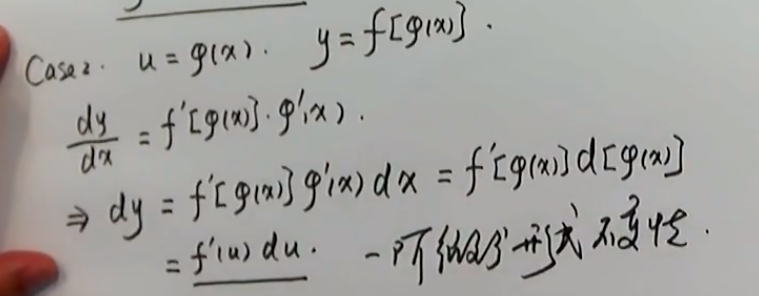 Case 2. u = φ(x). y = f[φ(x)].
dy/dx = f'[φ(x)]·φ'(x).
⇒ dy = f'[φ(x)]φ'(x)dx = f'[φ(x)]d[φ(x)]
= f'(u)du. 一阶微分形式不变性.